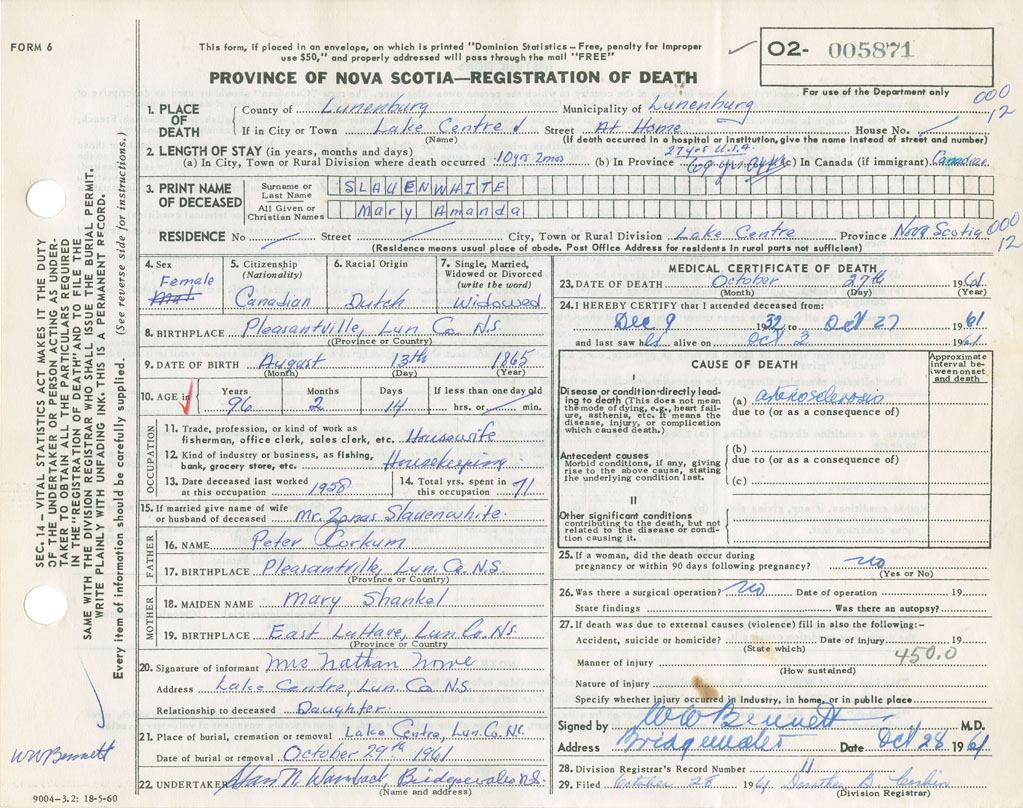 FORM 6
This form, if placed in an envelope, on which is printed "Dominion Statistics – Free, penalty for improper
use $50," and properly addressed will pass through the mail "FREE"
O2- 005871
For use of the Department only
PROVINCE OF NOVA SCOTIA—REGISTRATION OF DEATH
000
12
1. PLACE OF DEATH
County of Lunenburg Municipality of Lunenburg
If in City or Town Lake Centre Street At Home House No.
(Name) (If death occurred in a hospital or institution, give the name instead of street and number)
2. LENGTH OF STAY (in years, months and days) 27 yrs U.S.A.
(a) In City, Town or Rural Division where death occurred 10 yrs 2 mos (b) In Province (c) In Canada (if immigrant) Canadian
3. PRINT NAME OF DECEASED
Surname or Last Name SLAUENWHITE
All Given or Christian Names Mary Amanda
RESIDENCE No Street City, Town or Rural Division Lake Centre Province Nova Scotia
000
12
(Residence means usual place of abode. Post Office Address for residents in rural parts not sufficient)
4. Sex Female
5. Citizenship (Nationality) Canadian
6. Racial Origin Dutch
7. Single, Married, Widowed or Divorced (write the word) Widowed
8. BIRTHPLACE Pleasantville, Lun. Co. N.S.
(Province or Country)
9. DATE OF BIRTH August 13th 1865
(Month) (Day) (Year)
10. AGE in Years 96 Months 2 Days 14 If less than one day old hrs. or min.
OCCUPATION
11. Trade, profession, or kind of work as
fisherman, office clerk, sales clerk, etc. Housewife
12. Kind of industry or business, as fishing,
bank, grocery store, etc. Housekeeping
13. Date deceased last worked at this occupation 1958
14. Total yrs. spent in this occupation 71
15. If married give name of wife
or husband of deceased Mr. Zenas Slauenwhite.
FATHER
16. NAME Peter Corkum
17. BIRTHPLACE Pleasantville, Lun. Co. N.S.
(Province or Country)
MOTHER
18. MAIDEN NAME Mary Shankel
19. BIRTHPLACE East LaHave, Lun. Co. N.S.
(Province or Country)
20. Signature of informant Mrs Nathan Nowe
Address Lake Centre, Lun. Co. N.S.
Relationship to deceased Daughter
21. Place of burial, cremation or removal Lake Centre, Lun. Co. N.S.
Date of burial or removal October 29th 1961
22. UNDERTAKER Bridgewater N.S.
(Name and address)
9004–3.2: 18-5-60
MEDICAL CERTIFICATE OF DEATH
23. DATE OF DEATH October 27th 1961
(Month) (Day) (Year)
24. I HEREBY CERTIFY that I attended deceased from:
Dec 9 1932 to Oct 27 1961
and last saw her alive on Oct 2 1961
CAUSE OF DEATH
Approximate interval between onset and death
I
Disease or condition directly leading to death (This does not mean
the mode of dying, e.g., heart failure, asthenia, etc. It means the
disease, injury, or complication which caused death.)
(a) arteriosclerosis
due to (or as a consequence of)
Antecedent causes
Morbid conditions, if any, giving rise to the above cause, stating the underlying condition last.
(b)
due to (or as a consequence of)
(c)
II
Other significant conditions
contributing to the death, but not related to the disease or condition causing it.
25. If a woman, did the death occur during
pregnancy or within 90 days following pregnancy? no
(Yes or No)
26. Was there a surgical operation? no Date of operation 19
State findings Was there an autopsy?
27. If death was due to external causes (violence) fill in also the following:–
Accident, suicide or homicide? Date of injury 19
(State which)
450.0
Manner of injury
(How sustained)
Nature of injury
Specify whether injury occurred in Industry, in home, or in public place
Signed by WW Bennett M.D.
Address Bridgewater Date Oct 28 1961
28. Division Registrar's Record Number 11
29. Filed October 28 1961 Dorothea B.
(Division Registrar)
SEC. 14 – VITAL STATISTICS ACT MAKES IT THE DUTY
OF THE UNDERTAKER OR PERSON ACTING AS UNDER-
TAKER TO OBTAIN ALL THE PARTICULARS REQUIRED
IN THE "REGISTRATION OF DEATH" AND TO FILE THE
SAME WITH THE DIVISION REGISTRAR WHO SHALL ISSUE THE BURIAL PERMIT.
WRITE PLAINLY WITH UNFADING INK. THIS IS A PERMANENT RECORD.
Every item of information should be carefully supplied. (See reverse side for instructions.)
WW Bennett